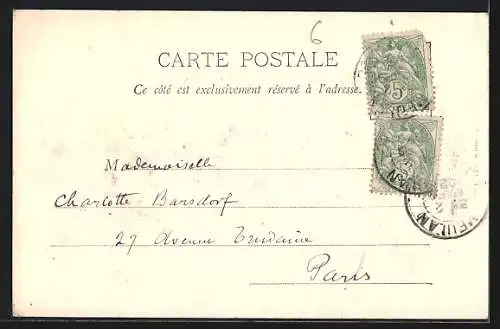 6
CARTE POSTALE
Ce côté est exclusivement réservé à l'adresse.
5
Mademoiselle
Charlotte Barsdorf
27 Avenue Trudaine
Paris
MEULAN